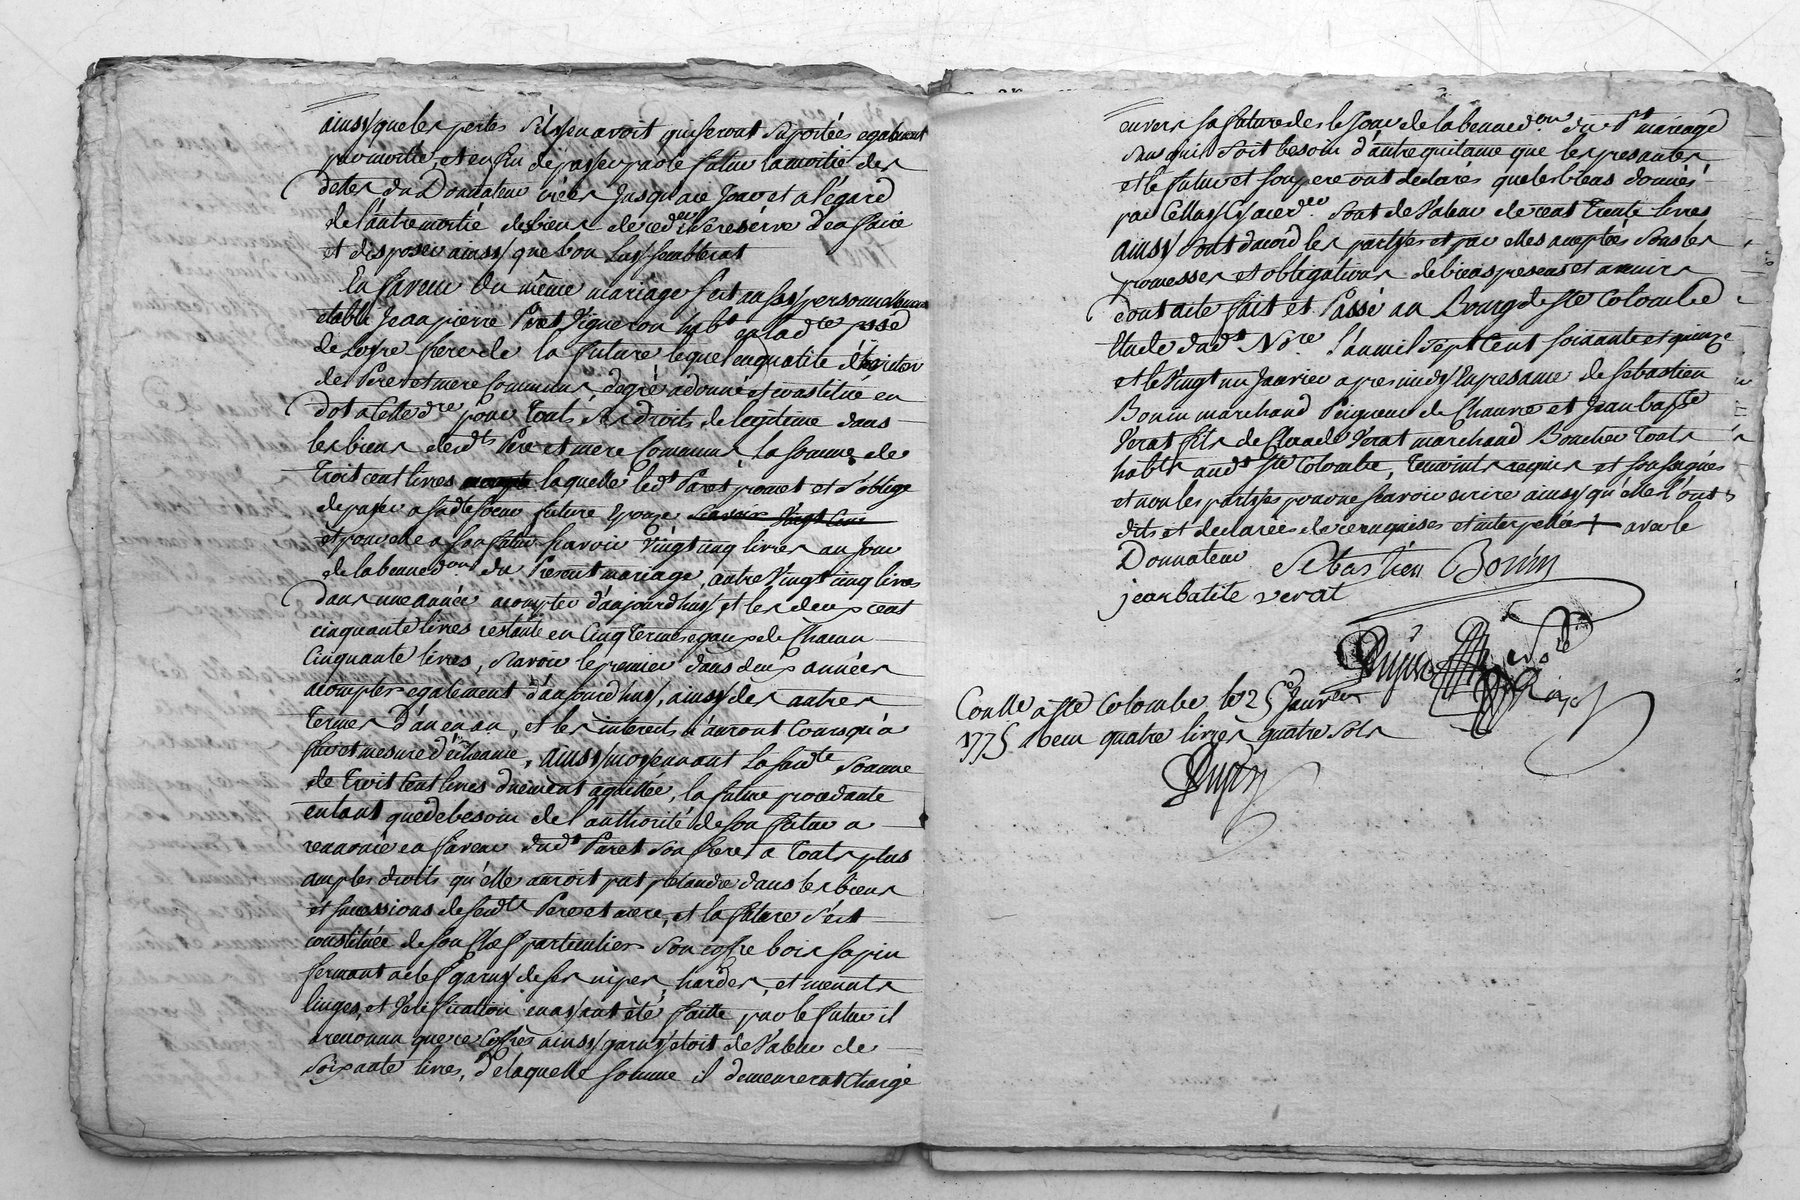 ainsy que les pertes s'il y en avoit qui seront suportées egalement
par moitié, et enfin de payer par le futur la moitié des
dettes du Donnateur créés jusqu'à ce jour et a l'égard
de l'autre moitié de biens dud Se reserve d'en faire
et disposer ainsy que bon luy semblerat
En faveur du même mariage s'est aussy personnellement
etably Jean pierre Paret Vigneron habt en lad psse
de Loyre frere de la future lequel en qualité d'heritier
de Pere et mere Communs, de gré a donné et constitué en
dot a Cette dre pour touts ses droits de legitime dans
les biens desdts Pere et mere Communs la somme de
Trois cent livres laquelle led Paret promet et s'oblige
de payer a sadte soeur future Epouze scavoir vingt cinq
et pour elle a son futur scavoir Vingt cinq livres au jour
de la benned.on du Present mariage, autre Vingt cinq livres
dans une année a compter d'aujourd'huy, et les deux cent
cinquante livres restante en Cinq termes egaux de Chacun
Cinquante livres, scavoir le premier dans deux années
a compter egalement d'aujourd'huy, ainsy des autres
termes d'an en an, et les interets n'auront Cours qu'a
fur et mesure d'echeance, ainsy moyennant la susdte somme
de Trois Cent livres duement aquittée, la future procedante
en tant que de besoin de l'authorité de son futur a
renoncé en faveur dudt Paret son frere a touts plus
amples droits qu'elle auroit put pretandre dans les biens
et successions de sesdts Pere et mere, et la future s'est
constituée de son Chef particulier son coffre bois sapin
fermant a clef garny de ses nipes, hardes, et menuts
linges, et Vérification en ayant été faitte par le futur il
a reconnu que ce Coffre ainsy garny etoit de Valeur de
Soixante livres, de laquelle somme il demeurerat Chargé
envers sa future des le Jour de la benned.on du Pt mariage
sans qu'il soit besoin d'autre quitance que les presantes
et le futur et son pere ont declarés que les biens donnés
par Celluy Cy sont de Valeur de cent trente livres
ainsy sont d'acord les partyes et par elles aceptées sous les
promesses et obligations de biens presens et avenir
dont acte fait et Passé au Bourg de Ste Colombe
Etude dudt Nore l'an mil sept Cent soixante et quinze
et le Vingt un Janvier apres midy En presance de Sebastien
Bonin marchand Peigneur de Chanvre et Jean baptte
Verat fils de Claude Verat marchand Boucher touts
habts audt Ste Colombe, temoints requis et soussignés
et non les partyes pour ne scavoir ecrire ainsy qu'elle l'ont
dits et declarées de ce enquises et interpellées + avec le
Donnateur Sebastien Bonin
jean batite verat
Dupin
Conllé a Ste Colombe le 25 Janvier
1775 Receu quatre livres quatre sols
Dupin